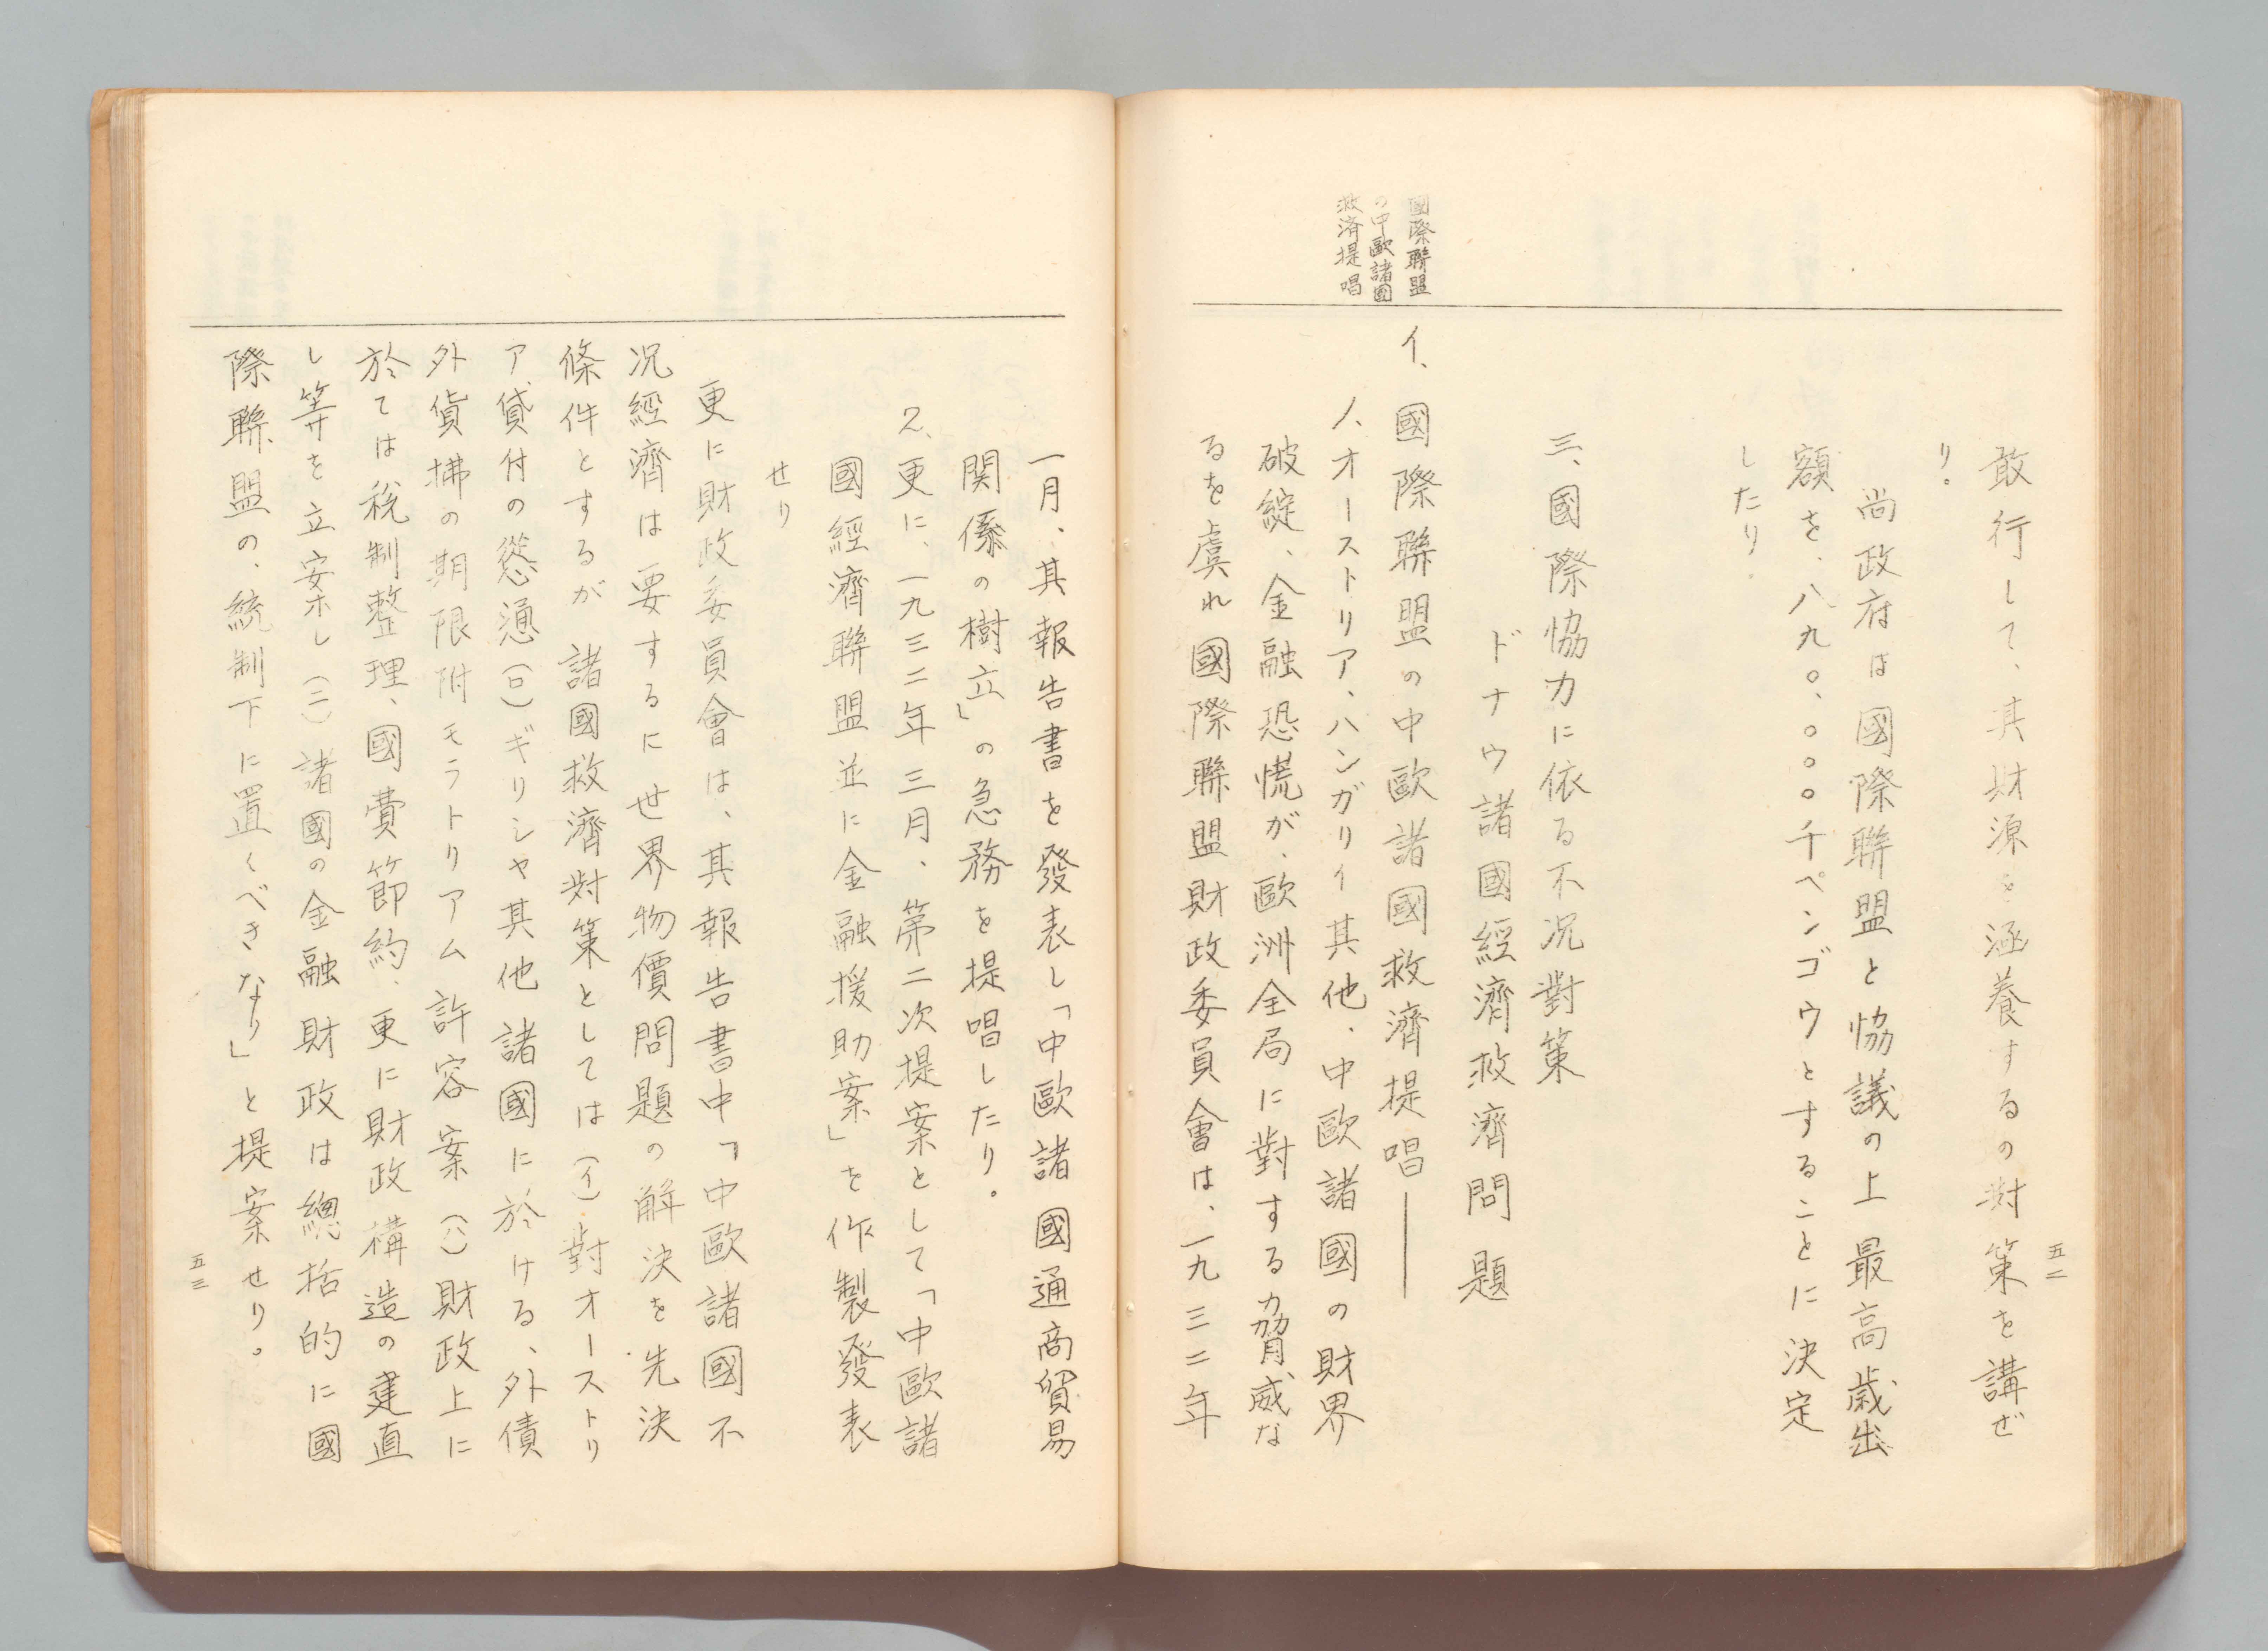 五二
敢行して、其財源を涵養するの対策を講ぜ
り。
尚政府は國際聯盟と協議の上最高歳出
額を、八九〇、〇〇〇千ペンゴウとすることに決定
したり。
三、國際協力に依る不况對策
ドナウ諸國經濟救濟問題
國際聯盟
の中歐諸國
救済提唱
イ、國際聯盟の中歐諸國救濟提唱——
1、オーストリア、ハンガリイ其他、中歐諸國の財界
破綻、金融恐慌が、歐洲全局に對する脅威な
るを虞れ國際聯盟財政委員會は、一九三二年
一月、其報告書を發表し「中歐諸國通商貿易
関係の樹立」の急務を提唱したり。
2、更に、一九三二年三月、第二次提案として「中歐諸
國經濟聯盟並に金融援助案」を作製發表
せり
更に財政委員會は、其報告書中「中歐諸國不
况經濟は要するに世界物價問題の解決を先決
條件とするが諸國救濟対策としては(イ)對オーストリ
ア貸付の慫慂(ロ)ギリシヤ其他諸國に於ける、外債
外貨拂の期限附モラトリアム許容案(ハ)財政上に
於ては税制整理、國費節約、更に財政構造の建直
し等を立案し(ニ)諸國の金融財政は總括的に國
際聯盟の、統制下に置くべきなり」と提案せり。
五三